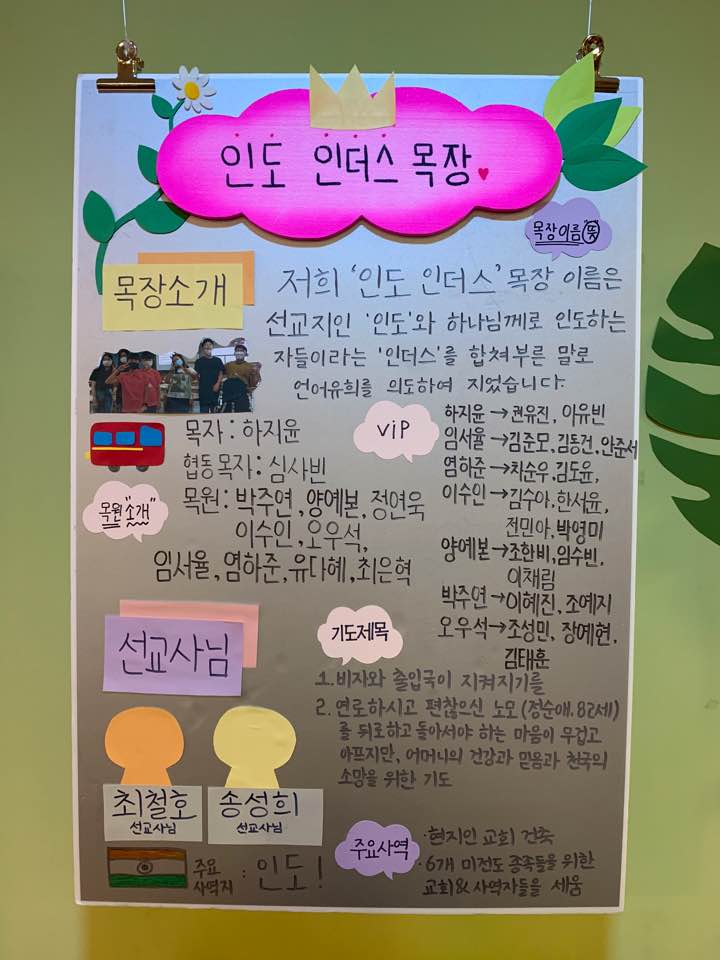 인도 인더스 목장
목장이름 뜻
목장소개
저희 '인도 인더스' 목장 이름은
선교지인 '인도'와 하나님께로 인도하는
자들이라는 '인더스'를 합쳐부른 말로
언어유희를 의도하여 지었습니다.
목자 : 하지윤
협동목자 : 심사빈
목원 "소개"
목원 : 박주연, 양예본, 정연욱
이수인, 오우석,
임서율, 염하준, 유다혜, 최은혁
VIP
하지윤 → 권유진, 이유빈
임서율 → 김준모, 김동건, 안준서
염하준 → 차순우, 김도윤,
이수인 → 김수아, 한서윤,
전민아, 박영미
양예본 → 조한비, 임수빈,
이채림
박주연 → 이혜진, 조예지
오우석 → 조성민, 장예현,
김태훈
선교사님
최철호
선교사님
송성희
선교사님
주요
사역지 : 인도!
기도제목
1. 비자와 출입국이 지켜지기를
2. 연로하시고 편찮으신 노모 (정순애. 82세)
를 뒤로하고 돌아서야 하는 마음이 무겁고
아프지만, 어머니의 건강과 믿음과 천국의
소망을 위한 기도
주요사역
· 현지인 교회 건축
· 6개 미전도 종족들을 위한
교회 & 사역자들을 세움